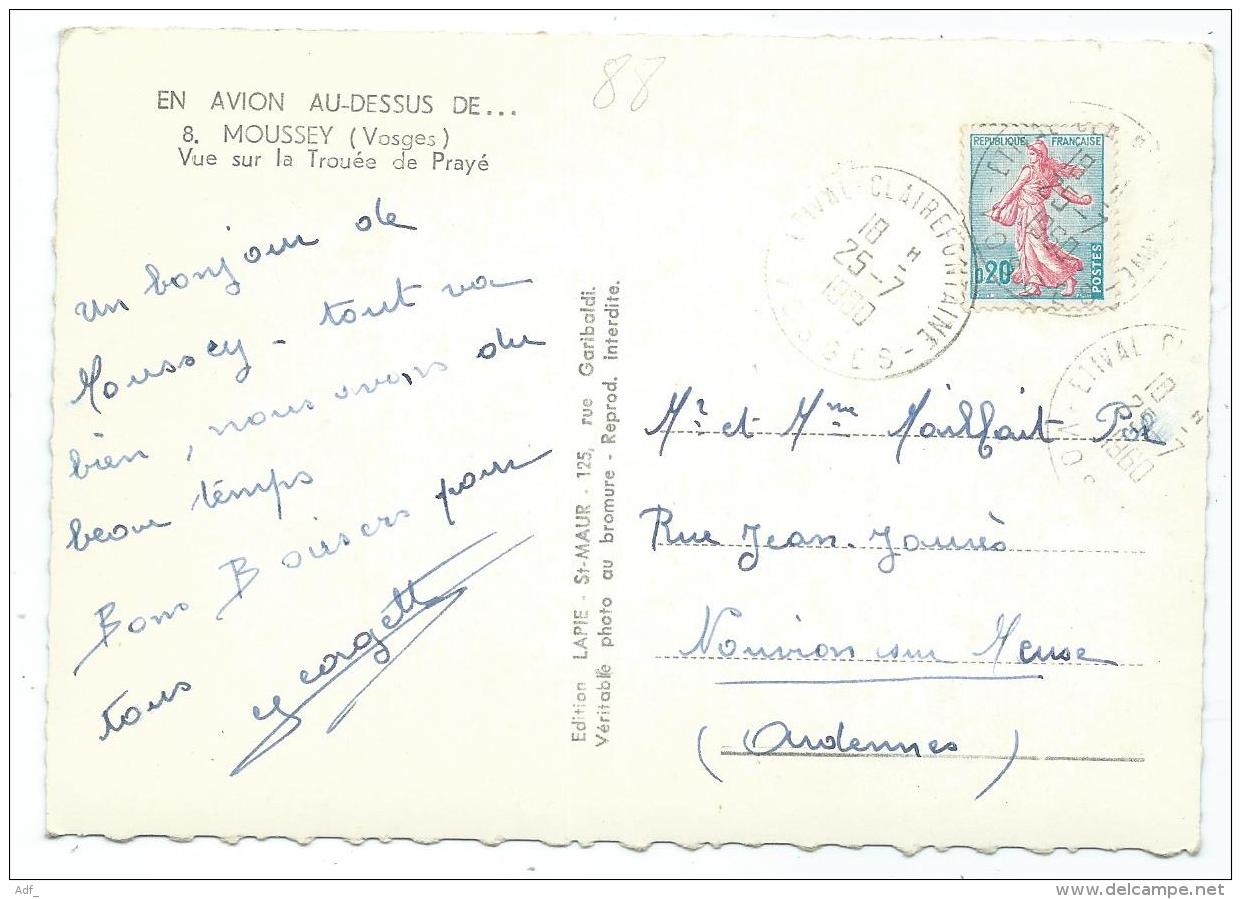 88
EN AVION AU-DESSUS DE...
8. MOUSSEY (Vosges)
Vue sur la Trouée de Prayé
un bonjour de
Moussey - tout va
bien, nous avons du
beau temps
Bons Baisers pour
tous
Georgette
Edition LAPIE - St-MAUR - 125, rue Garibaldi.
Véritable photo au bromure - Reprod. interdite.
REPUBLIQUE FRANÇAISE
0,20
POSTES
ETIVAL-CLAIREFONTAINE
18 H
25-7
1960
VOSGES
ETIVAL
18 H
25-7
1960
Mr et Mme Mailfait
Rue Jean-Jaurès
Nouvion sur Meuse
(Ardennes)
Adf_
www.delcampe.net